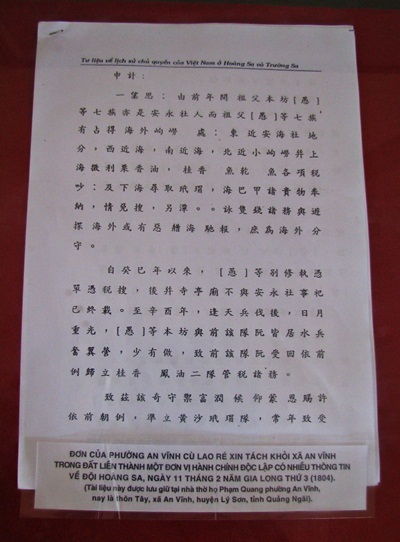 Tư liệu về lịch sử chủ quyền của Việt Nam ở Hoàng Sa và Trường Sa
申計：
一葉思：由前年間祖父本坊[愚]
等七族亦是安永社人而祖父[愚]等七族
有占得海外岣嶗 處：東近安海社地
分，西近海，南近海，北近小岣嶗井上
海徵利栗香油，桂香 魚乾 魚各項稅
吵；及下海尋取玳瑁，海巴甲諸貴物奉
納，情免搜，另潭。。詠雙錢諸務與遊
探海外或有惡艚海馳報，庶為海外分
守。
自癸巳年以來，[愚]等別修執憑
單憑稅搜，後井寺亭廟不與安永社事祀
已終載。至辛酉年，逢天兵伐後，日月
重光，[愚]等本坊與前該隊阮皆居水兵
奮翼營，少有做，致前該隊阮受回依前
例歸立桂香 鳳油二隊管稅諸務。
致茲該奇守禦富潤 候 仰蒙 恩賜許
依前朝例，準立黃沙玳瑁隊，常年致受
ĐƠN CỦA PHƯỜNG AN VĨNH CÙ LAO RÉ XIN TÁCH KHỎI XÃ AN VĨNH
TRONG ĐẤT LIỀN THÀNH MỘT ĐƠN VỊ HÀNH CHÍNH ĐỘC LẬP CÓ NHIỀU THÔNG TIN
VỀ ĐỘI HOÀNG SA, NGÀY 11 THÁNG 2 NĂM GIA LONG THỨ 3 (1804).
(Tài liệu này được lưu giữ tại nhà thờ họ Phạm Quang phường An Vĩnh,
nay là thôn Tây, xã An Vĩnh, huyện Lý Sơn, tỉnh Quảng Ngãi).